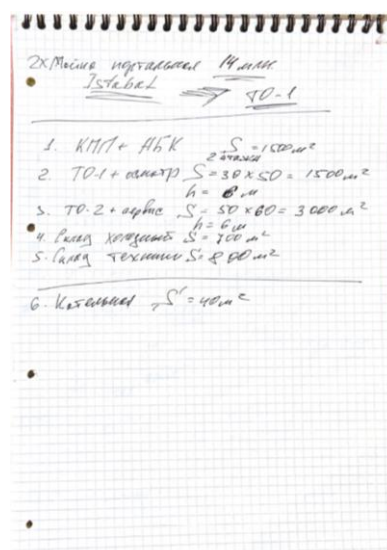 2х Мойка портальная 14 млн.
Istobal ⇒ ТО-1
1. КПП + АБК S = 1500 м²
2 этажа
2. ТО-1 + осмотр S = 30 х 50 = 1500 м²
h = 6 м
3. ТО-2 + сервис S = 50 х 60 = 3000 м²
h = 6 м
4. Склад холодный S = 700 м²
5. Склад техники S = 800 м²
6. Котельная S = 40 м²